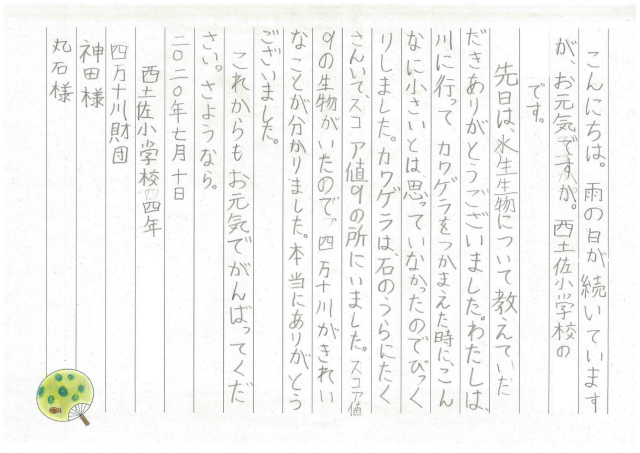 こんにちは。雨の日が続いています
が、お元気ですか。西土佐小学校の
です。
先日は、水生生物について教えていた
だきありがとうございました。わたしは、
川に行ってカワゲラをつかまえた時に、こん
なに小さいとは思っていなかったのでびっく
りしました。カワゲラは、石のうらにたく
さんいて、スコア値9の所にいました。スコア値
9の生物がいたので、四万十川がきれい
なことが分かりました。本当にありがとう
ございました。
これからもお元気でがんばってくだ
さい。さようなら。
二〇二〇年七月十日
西土佐小学校四年
四万十川財団
神田様
丸石様